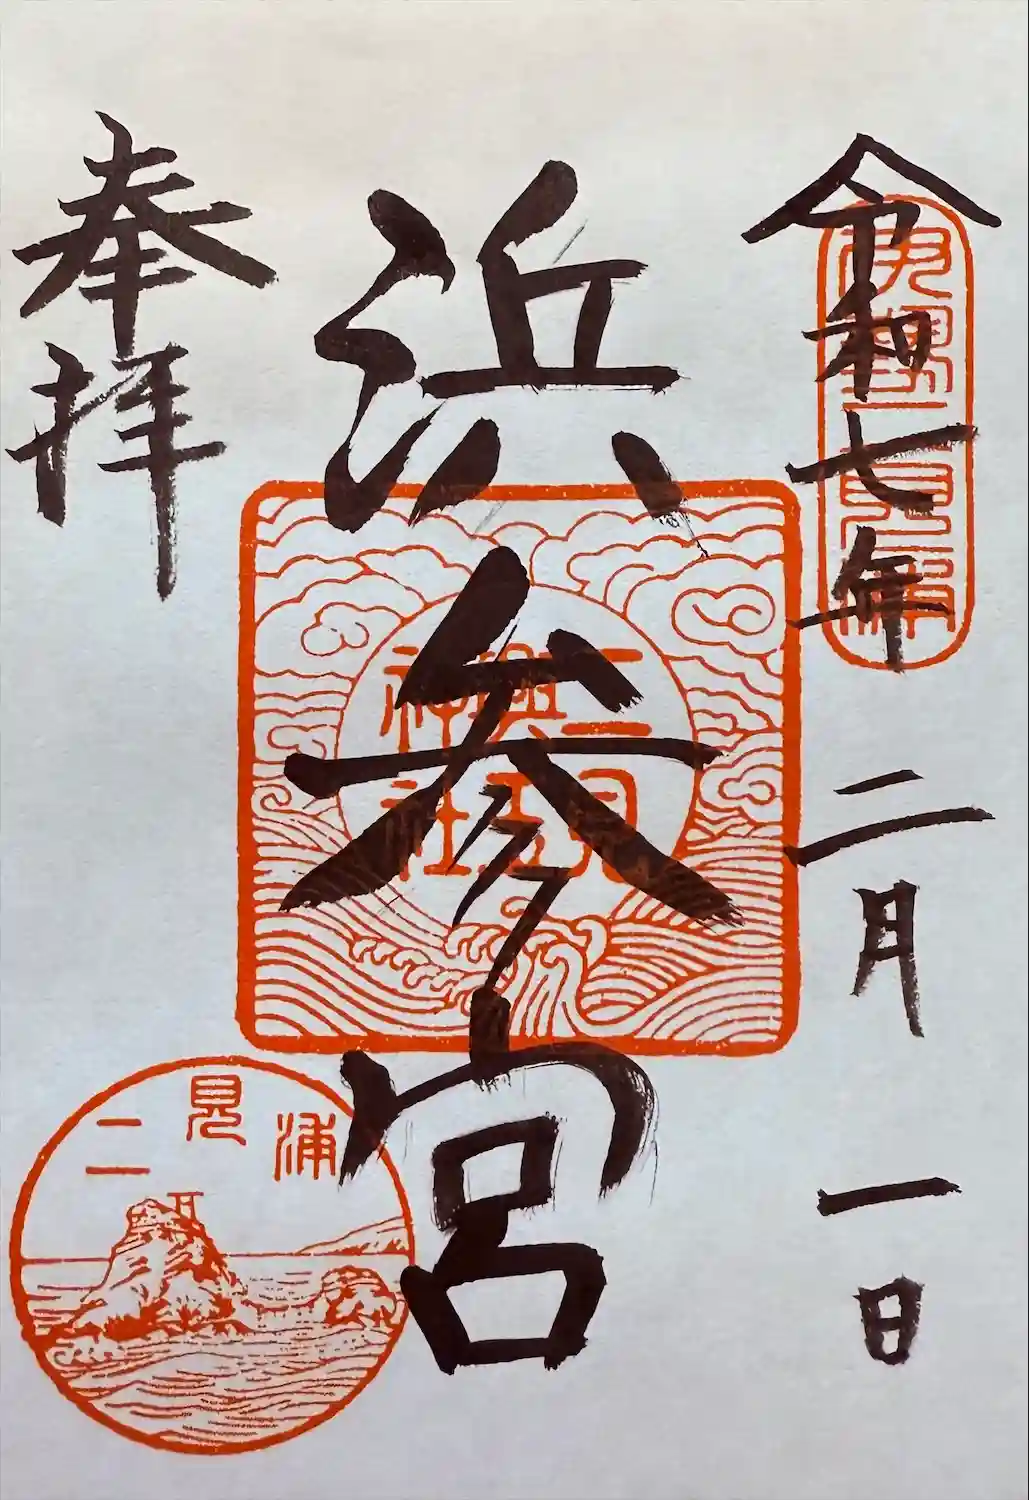 令和七年二月一日
伊勢二見浦
浜参宮
二見
興玉
神社
奉拝
二見浦